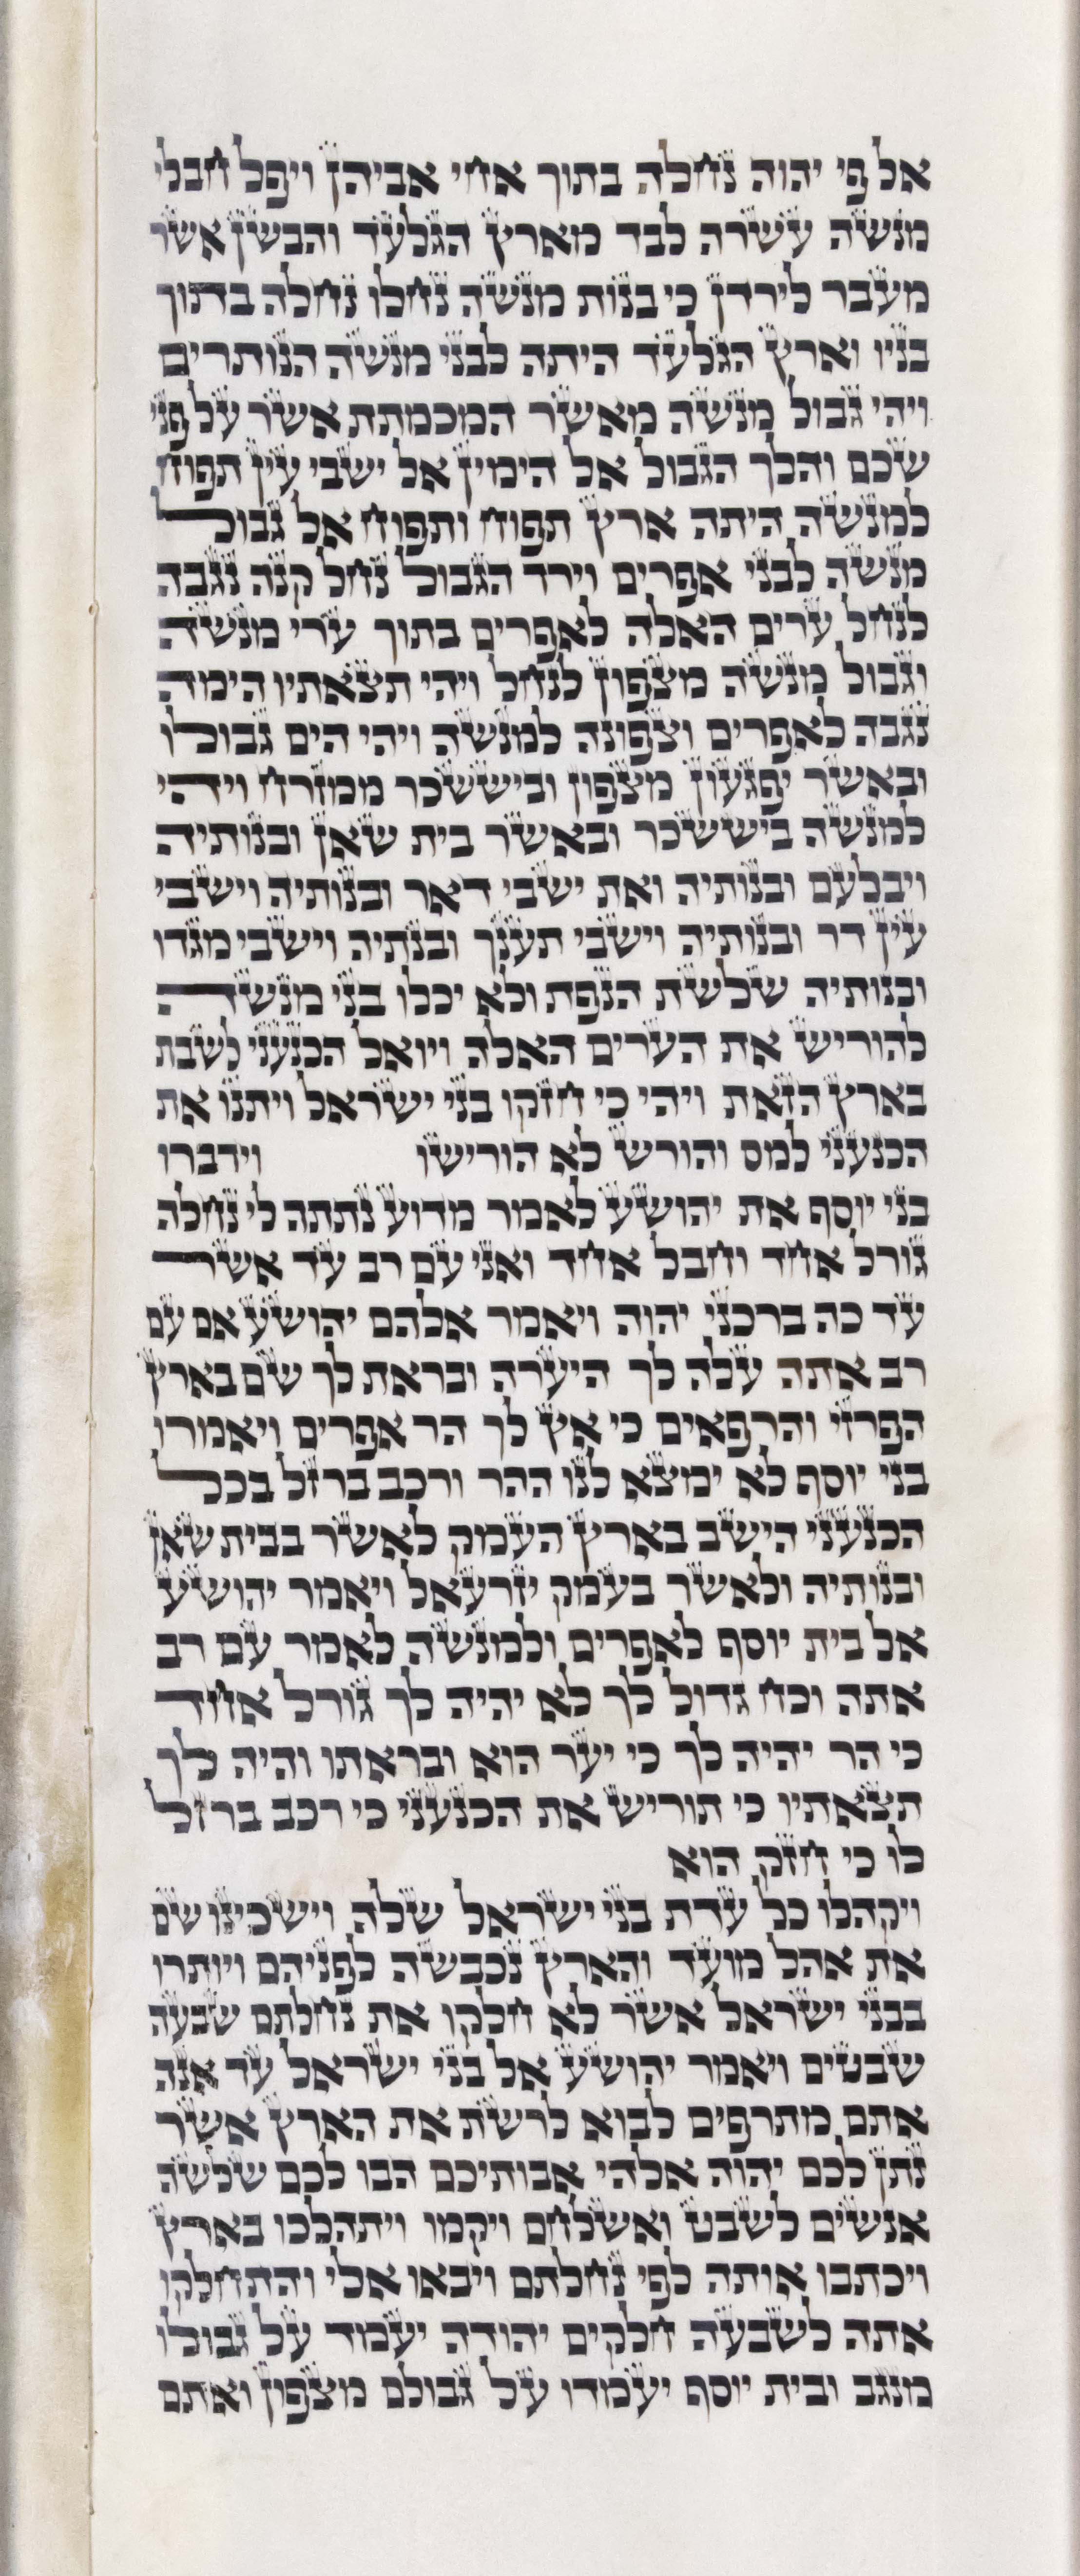 אל פי יהוה נחלה בתוך אחי אביהן ויפל חבלי
מנשה עשרה לבד מארץ הגלעד והבשן אשר
מעבר לירדן כי בנות מנשה נחלו נחלה בתוך
בניו וארץ הגלעד היתה לבני מנשה הנותרים
ויהי גבול מנשה מאשר המכמתת אשר על פני
שכם והלך הגבול אל הימין אל ישבי עין תפוח
למנשה היתה ארץ תפוח ותפוח אל גבול
מנשה לבני אפרים וירד הגבול נחל קנה נגבה
לנחל ערים האלה לאפרים בתוך ערי מנשה
וגבול מנשה מצפון לנחל ויהי תצאתיו הימה
נגבה לאפרים וצפונה למנשה ויהי הים גבולו
ובאשר יפגעון מצפון וביששכר ממזרח ויהי
למנשה ביששכר ובאשר בית שאן ובנותיה
ויבלעם ובנותיה ואת ישבי דאר ובנותיה וישבי
עין דר ובנותיה וישבי תענך ובנתיה וישבי מגדו
ובנותיה שלשת הנפת ולא יכלו בני מנשה
להוריש את הערים האלה ויואל הכנעני לשבת
בארץ הזאת ויהי כי חזקו בני ישראל ויתנו את
הכנעני למס והורש לא הורישו וידברו
בני יוסף את יהושע לאמר מדוע נתתה לי נחלה
גורל אחד וחבל אחד ואני עם רב עד אשר
עד כה ברכני יהוה ויאמר אלהם יהושע אם עם
רב אתה עלה לך היערה ובראת לך שם בארץ
הפרזי והרפאים כי אץ לך הר אפרים ויאמרו
בני יוסף לא ימצא לנו ההר ורכב ברזל בכל
הכנעני הישב בארץ העמק לאשר בבית שאן
ובנותיה ולאשר בעמק יזרעאל ויאמר יהושע
אל בית יוסף לאפרים ולמנשה לאמר עם רב
אתה וכח גדול לך לא יהיה לך גורל אחד
כי הר יהיה לך כי יער הוא ובראתו והיה לך
תצאתיו כי תוריש את הכנעני כי רכב ברזל
לו כי חזק הוא
ויקהלו כל עדת בני ישראל שלה וישכינו שם
את אהל מועד והארץ נכבשה לפניהם ויותרו
בבני ישראל אשר לא חלקו את נחלתם שבעה
שבטים ויאמר יהושע אל בני ישראל עד אנה
אתם מתרפים לבוא לרשת את הארץ אשר
נתן לכם יהוה אלהי אבותיכם הבו לכם שלשה
אנשים לשבט ואשלחם ויקמו ויתהלכו בארץ
ויכתבו אותה לפי נחלתם ויבאו אלי והתחלקו
אתה לשבעה חלקים יהודה יעמד על גבולו
מנגב ובית יוסף יעמדו על גבולם מצפון ואתם